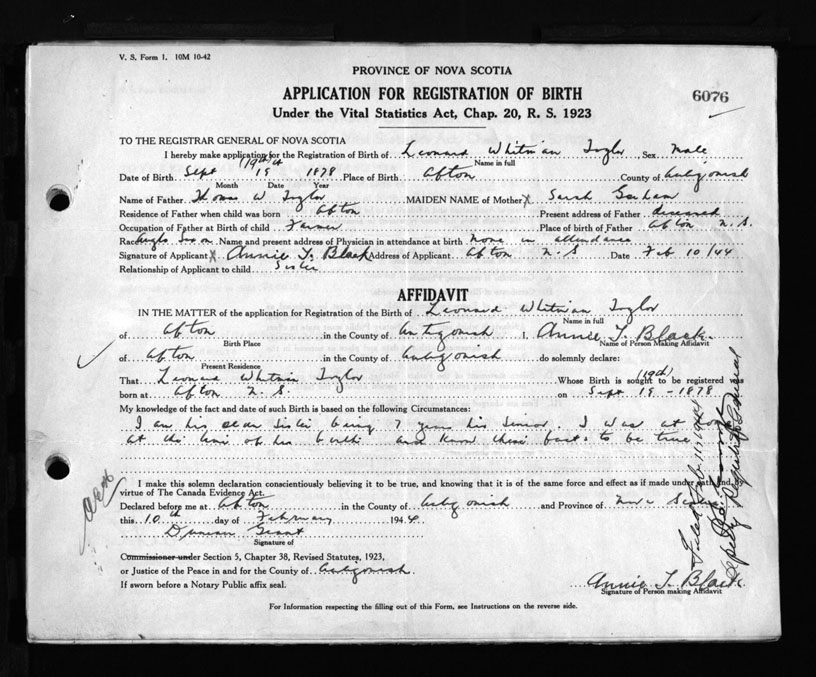 V. S. Form 1. 10M 10-42
PROVINCE OF NOVA SCOTIA
APPLICATION FOR REGISTRATION OF BIRTH
6076
Under the Vital Statistics Act, Chap. 20, R. S. 1923
TO THE REGISTRAR GENERAL OF NOVA SCOTIA
I hereby make application for the Registration of Birth of Leonard Whitman Taylor Sex Male
(19th) Name in full
Date of Birth Sept 19 1878 Place of Birth Afton County of Antigonish
Month Date Year
Name of Father Thomas W Taylor MAIDEN NAME of Mother Sarah Graham
Residence of Father when child was born Afton Present address of Father deceased
Occupation of Father at Birth of child Farmer Place of birth of Father Afton N. S.
Race Anglo Saxon Name and present address of Physician in attendance at birth None in attendance
Signature of Applicant X Annie T. Black Address of Applicant Afton N. S Date Feb 10/44
Relationship of Applicant to child Sister
AFFIDAVIT
IN THE MATTER of the application for Registration of the Birth of Leonard Whitman Taylor
Name in full
of Afton in the County of Antigonish I, Annie T. Black
Birth Place Name of Person Making Affidavit
of Afton in the County of Antigonish do solemnly declare:
Present Residence
That Leonard Whitman Taylor Whose Birth is sought to be registered was
(19th)
born at Afton N. S. on Sept 19 - 1878
My knowledge of the fact and date of such Birth is based on the following Circumstances:
I am his elder Sister being 7 years his Senior. I was at home
at the time of his birth and know these facts to be true
I make this solemn declaration conscientiously believing it to be true, and knowing that it is of the same force and effect as if made under oath and by
virtue of The Canada Evidence Act.
Declared before me at Afton in the County of Antigonish and Province of Nova Scotia
this 10th day of February 1944
Duncan Grant
Signature of
Commissioner under Section 5, Chapter 38, Revised Statutes, 1923,
or Justice of the Peace in and for the County of Antigonish
If sworn before a Notary Public affix seal.
Annie T. Black
Signature of Person making Affidavit
For Information respecting the filling out of this Form, see Instructions on the reverse side.
Deputy Registrar General